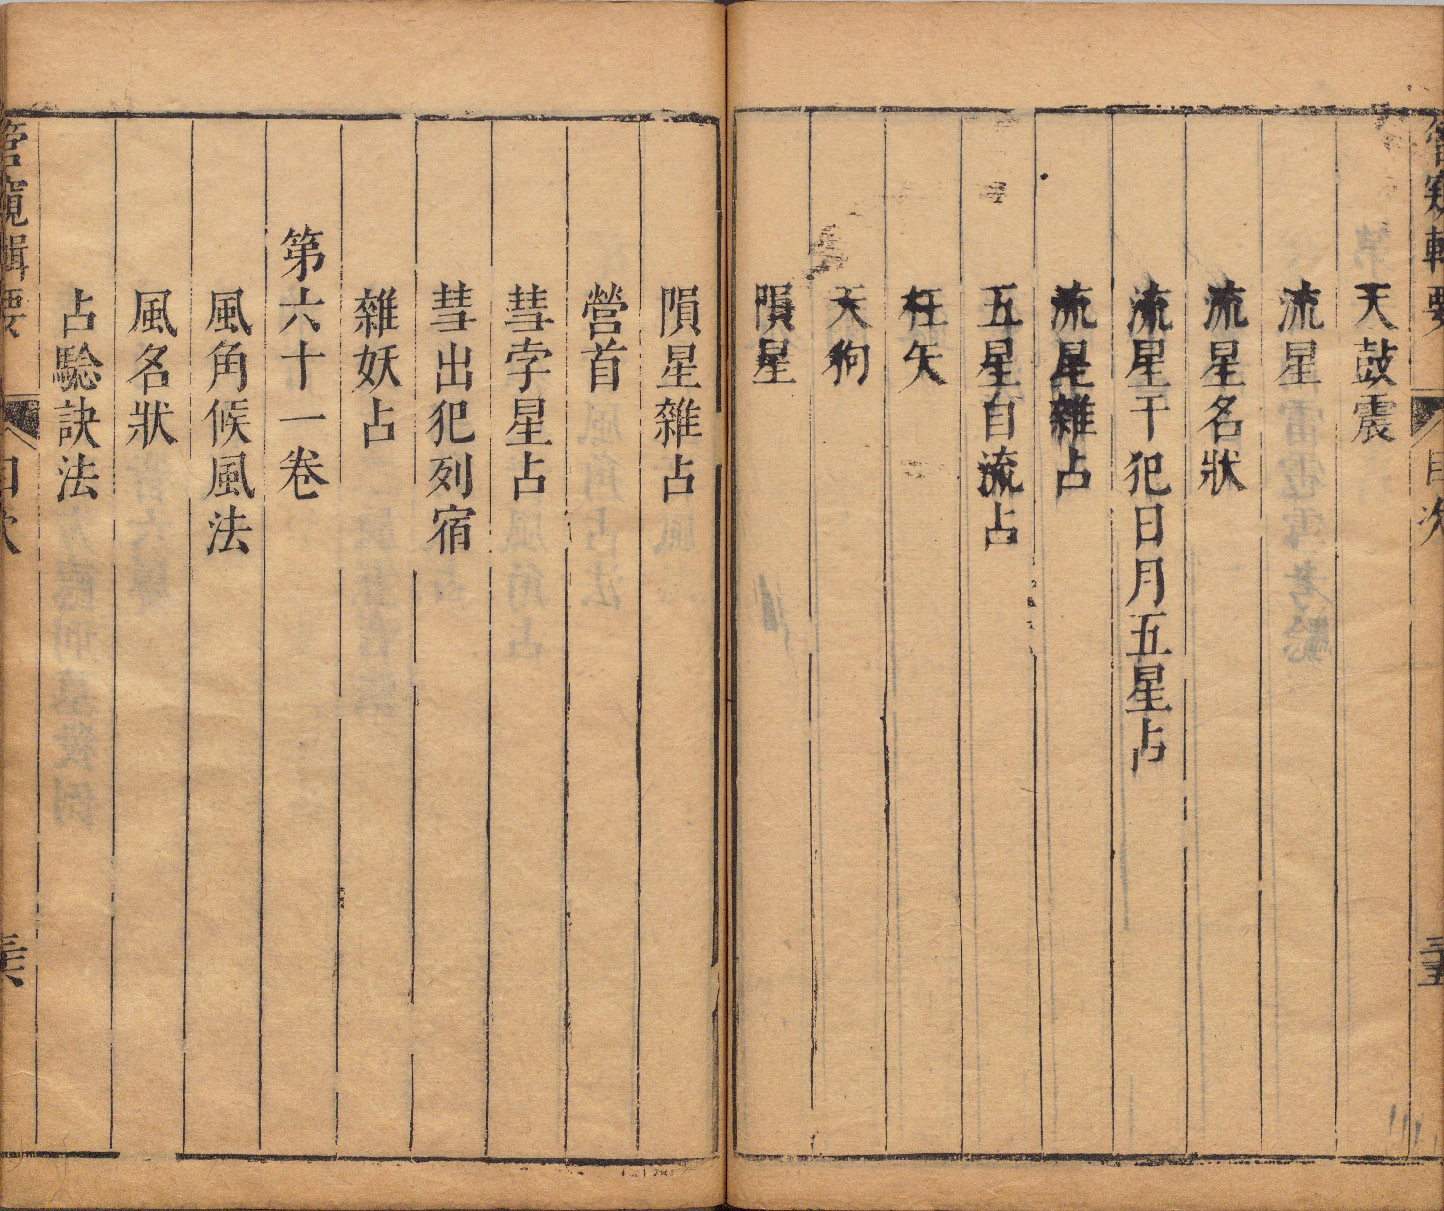 管窺輯要
目次
天鼓震
流星
流星名狀
流星干犯日月五星占
流星雜占
五星自流占
枉矢
天狗
隕星
隕星雜占
營首
彗孛星占
彗出犯列宿
雜妖占
第六十一卷
風角候風法
風名狀
占驗訣法
管窺輯要
目次